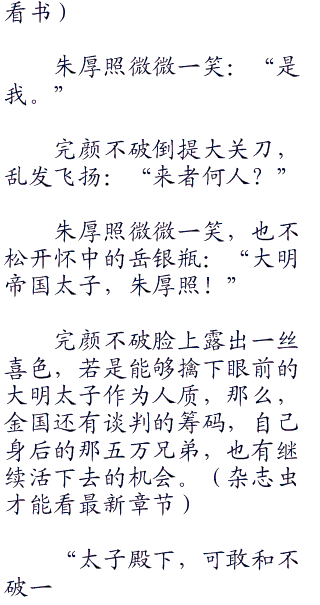 看书）
朱厚照微微一笑：“是
我。”
完颜不破倒提大关刀，
乱发飞扬：“来者何人？”
朱厚照微微一笑，也不
松开怀中的岳银瓶：“大明
帝国太子，朱厚照！”
完颜不破脸上露出一丝
喜色，若是能够擒下眼前的
大明太子作为人质，那么，
金国还有谈判的筹码，自己
身后的那五万兄弟，也有继
续活下去的机会。（杂志虫
才能看最新章节）
“太子殿下，可敢和不
破一